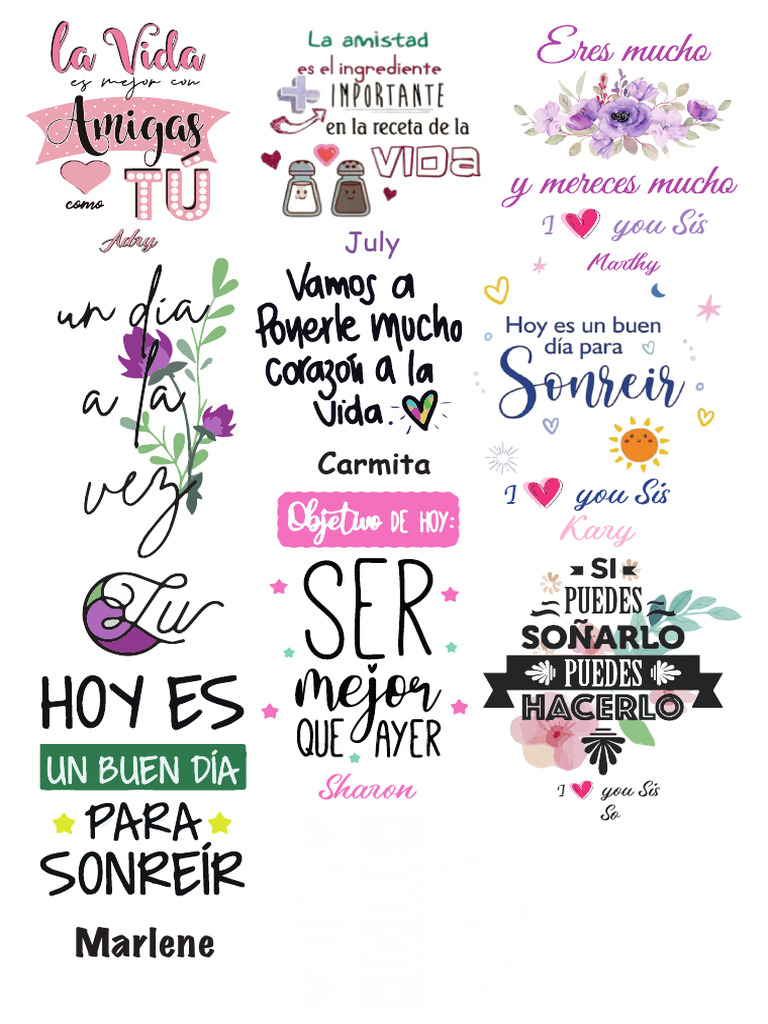 la Vida
es mejor con
Amigas
como TÚ
Adry
La amistad
es el ingrediente
+ IMPORTANTE
en la receta de la
VIDA
July
Eres mucho
y mereces mucho
I ❤ you Sis
Marthy
un día
a la
vez
Lu
Vamos a
Ponerle mucho
corazón a la
Vida.
Carmita
Hoy es un buen
día para
Sonreir
I ❤ you Sis
Kary
HOY ES
UN BUEN DÍA
PARA
SONREÍR
Marlene
Objetivo DE HOY:
SER
mejor
QUE AYER
Sharon
SI
PUEDES
SOÑARLO
PUEDES
HACERLO
I ❤ you Sis
So